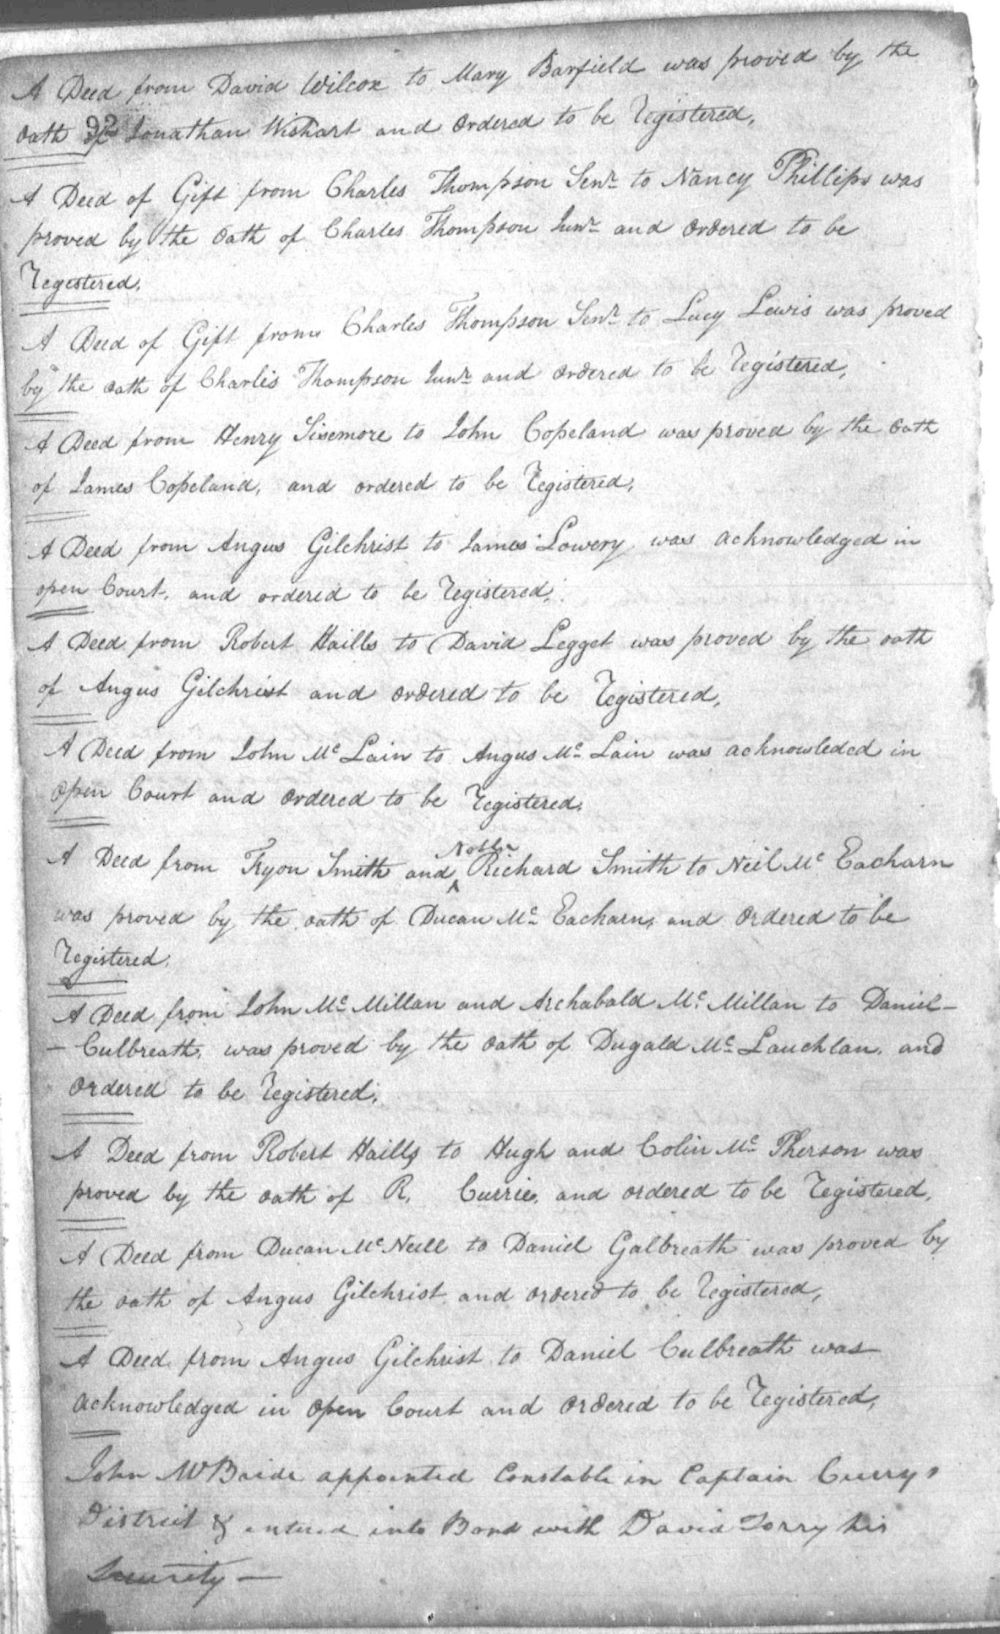 A Deed from David Wilcox to Mary Barfield was proved by the
Oath of Jonathan Wishart and Ordered to be Registered.
92
A Deed of Gift from Charles Thompson Senr. to Nancy Phillips was
proved by the Oath of Charles Thompson Junr. and Ordered to be
Registered.
A Deed of Gift from Charles Thompson Senr. to Lucy Lewis was proved
by the oath of Charles Thompson Junr. and Ordered to be Registered.
A Deed from Henry Sisemore to John Copeland was proved by the Oath
of James Copeland, and ordered to be Registered.
A Deed from Angus Gilchrist to James Lowery was acknowledged in
open Court, and ordered to be Registered.
A Deed from Robert Haills to David Legget was proved by the oath
of Angus Gilchrist and ordered to be Registered.
A Deed from John Mc Lain to Angus Mc Lain was acknowleded in
Open Court and Ordered to be Registered.
A Deed from Tryon Smith and Richard Smith to Neil Mc Eacharn
was proved by the oath of Ducan Mc Eacharn, and Ordered to be
Registered.
A Deed from John Mc Millan and Archabald Mc Millan to Daniel-
- Culbreath, was proved by the Oath of Dugald Mc Lauchlan. and
Ordered to be Registered.
A Deed from Robert Haills to Hugh and Colin Mc Pherson was
proved by the oath of R. Currie, and ordered to be Registered.
A Deed from Ducan Mc Neill to Daniel Galbreath was proved by
the oath of Angus Gilchrist and ordered to be Registered,
A Deed from Angus Gilchrist to Daniel Culbreath was
Acknowledged in Open Court and Ordered to be Registered,
John McBride appointed Constable in Captain Currys
District & entered into Bond with David Torry his
Security -